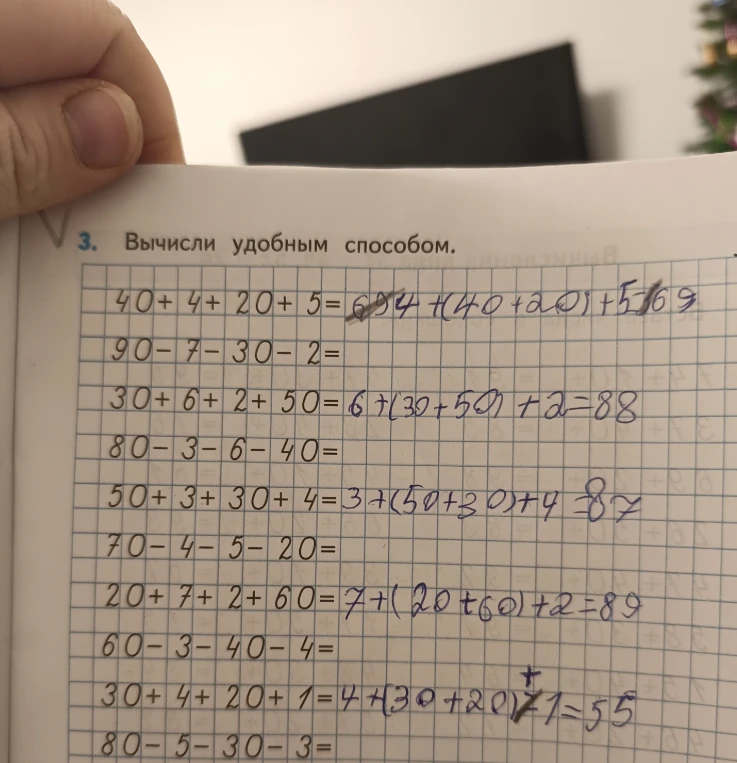 3. Вычисли удобным способом.
40+ 4+ 20+ 5= 4 +(40 +20) +5=69
90- 7- 30- 2=
30+ 6+ 2+ 50= 6 +(30+50) +2=88
80- 3- 6- 40=
50+ 3+ 30+ 4= 3 +(50+30)+4 =87
70- 4- 5- 20=
20+ 7+ 2+ 60= 7+(20+60)+2=89
60- 3- 40- 4=
30+ 4+ 20+ 1= 4+(30+20)+1=55
80- 5- 30- 3=